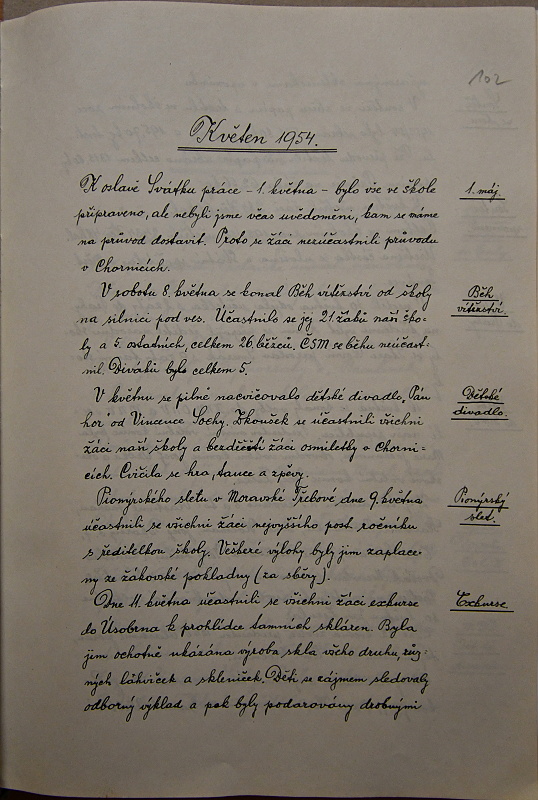 102
Květen 1954.
K oslavě Svátku práce - 1. května - bylo vše ve škole
1. máj.
připraveno, ale nebyli jsme včas uvědoměni, kam se máme
na průvod dostavit. Proto se žáci nezúčastnili průvodu
v Chornicích.
V sobotu 8. května se konal Běh vítězství od školy
Běh
vítězství.
na silnici pod ves. Účastnilo se jej 21 žáků naší ško-
ly a 5. ostatních, celkem 26 běžců. ČSM se běhu neúčast-
nil. Diváků bylo celkem 5.
V květnu se pilně nacvičovalo dětské divadlo „Pán
Dětské
divadlo.
hor" od Vincence Sochy. Zkoušek se účastnili všichni
žáci naší školy a bezděčští žáci osmiletky v Chorni-
cích. Cvičila se hra, tance a zpěvy.
Pionýrského sletu v Moravské Třebové dne 9. května
Pionýrský
slet.
účastnili se všichni žáci nejvyššího post. ročníku
s ředitelkou školy. Veškeré výlohy byly jim zaplace-
ny ze žákovské pokladny (za sběry).
Dne 11. května účastnili se všichni žáci exkurse
Exkurse.
do Úsobrna k prohlídce tamních skláren. Byla
jim ochotně ukázána výroba skla všeho druhu, růz-
ných láhviček a skleniček. Děti se zájmem sledovaly
odborný výklad a pak byly podarovány drobnými